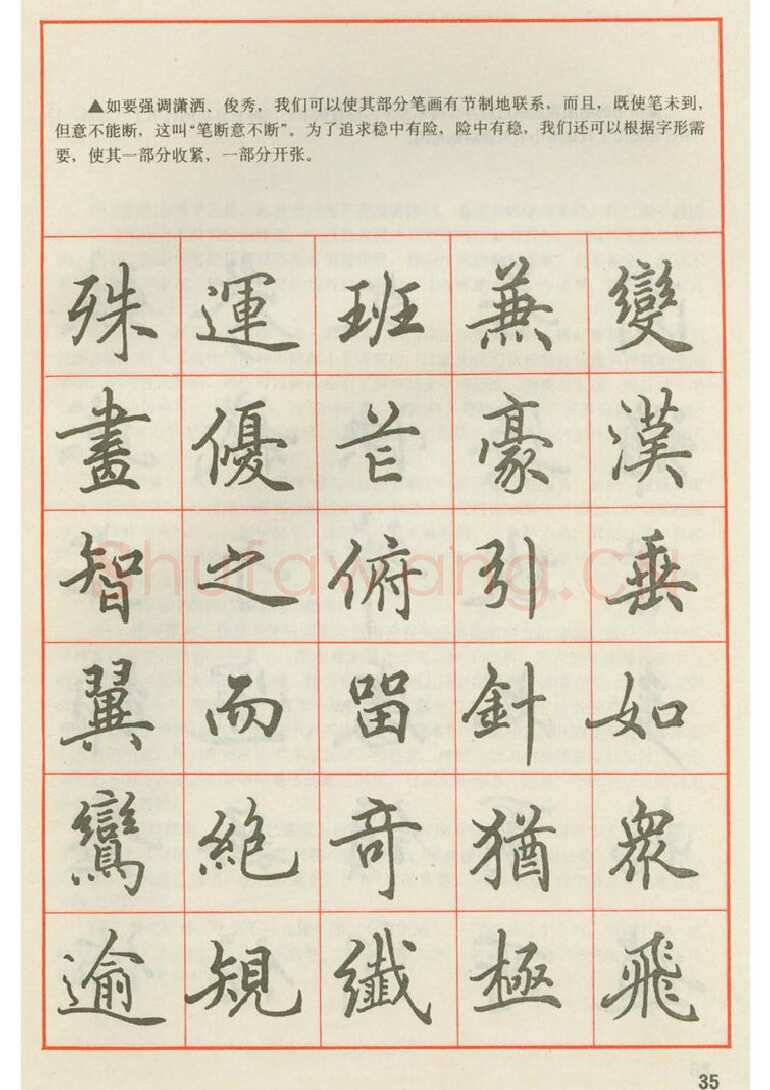 ▲如要强调潇洒、俊秀，我们可以使其部分笔画有节制地联系，而且，既使笔未到，
但意不能断，这叫“笔断意不断”。为了追求稳中有险，险中有稳，我们还可以根据字形需
要，使其一部分收紧，一部分开张。
殊運班兼變
畫優芒豪漢
智之俯引垂
翼而留針如
鸞絕奇猶眾
逾規纖極飛
Shufawang.CN
35